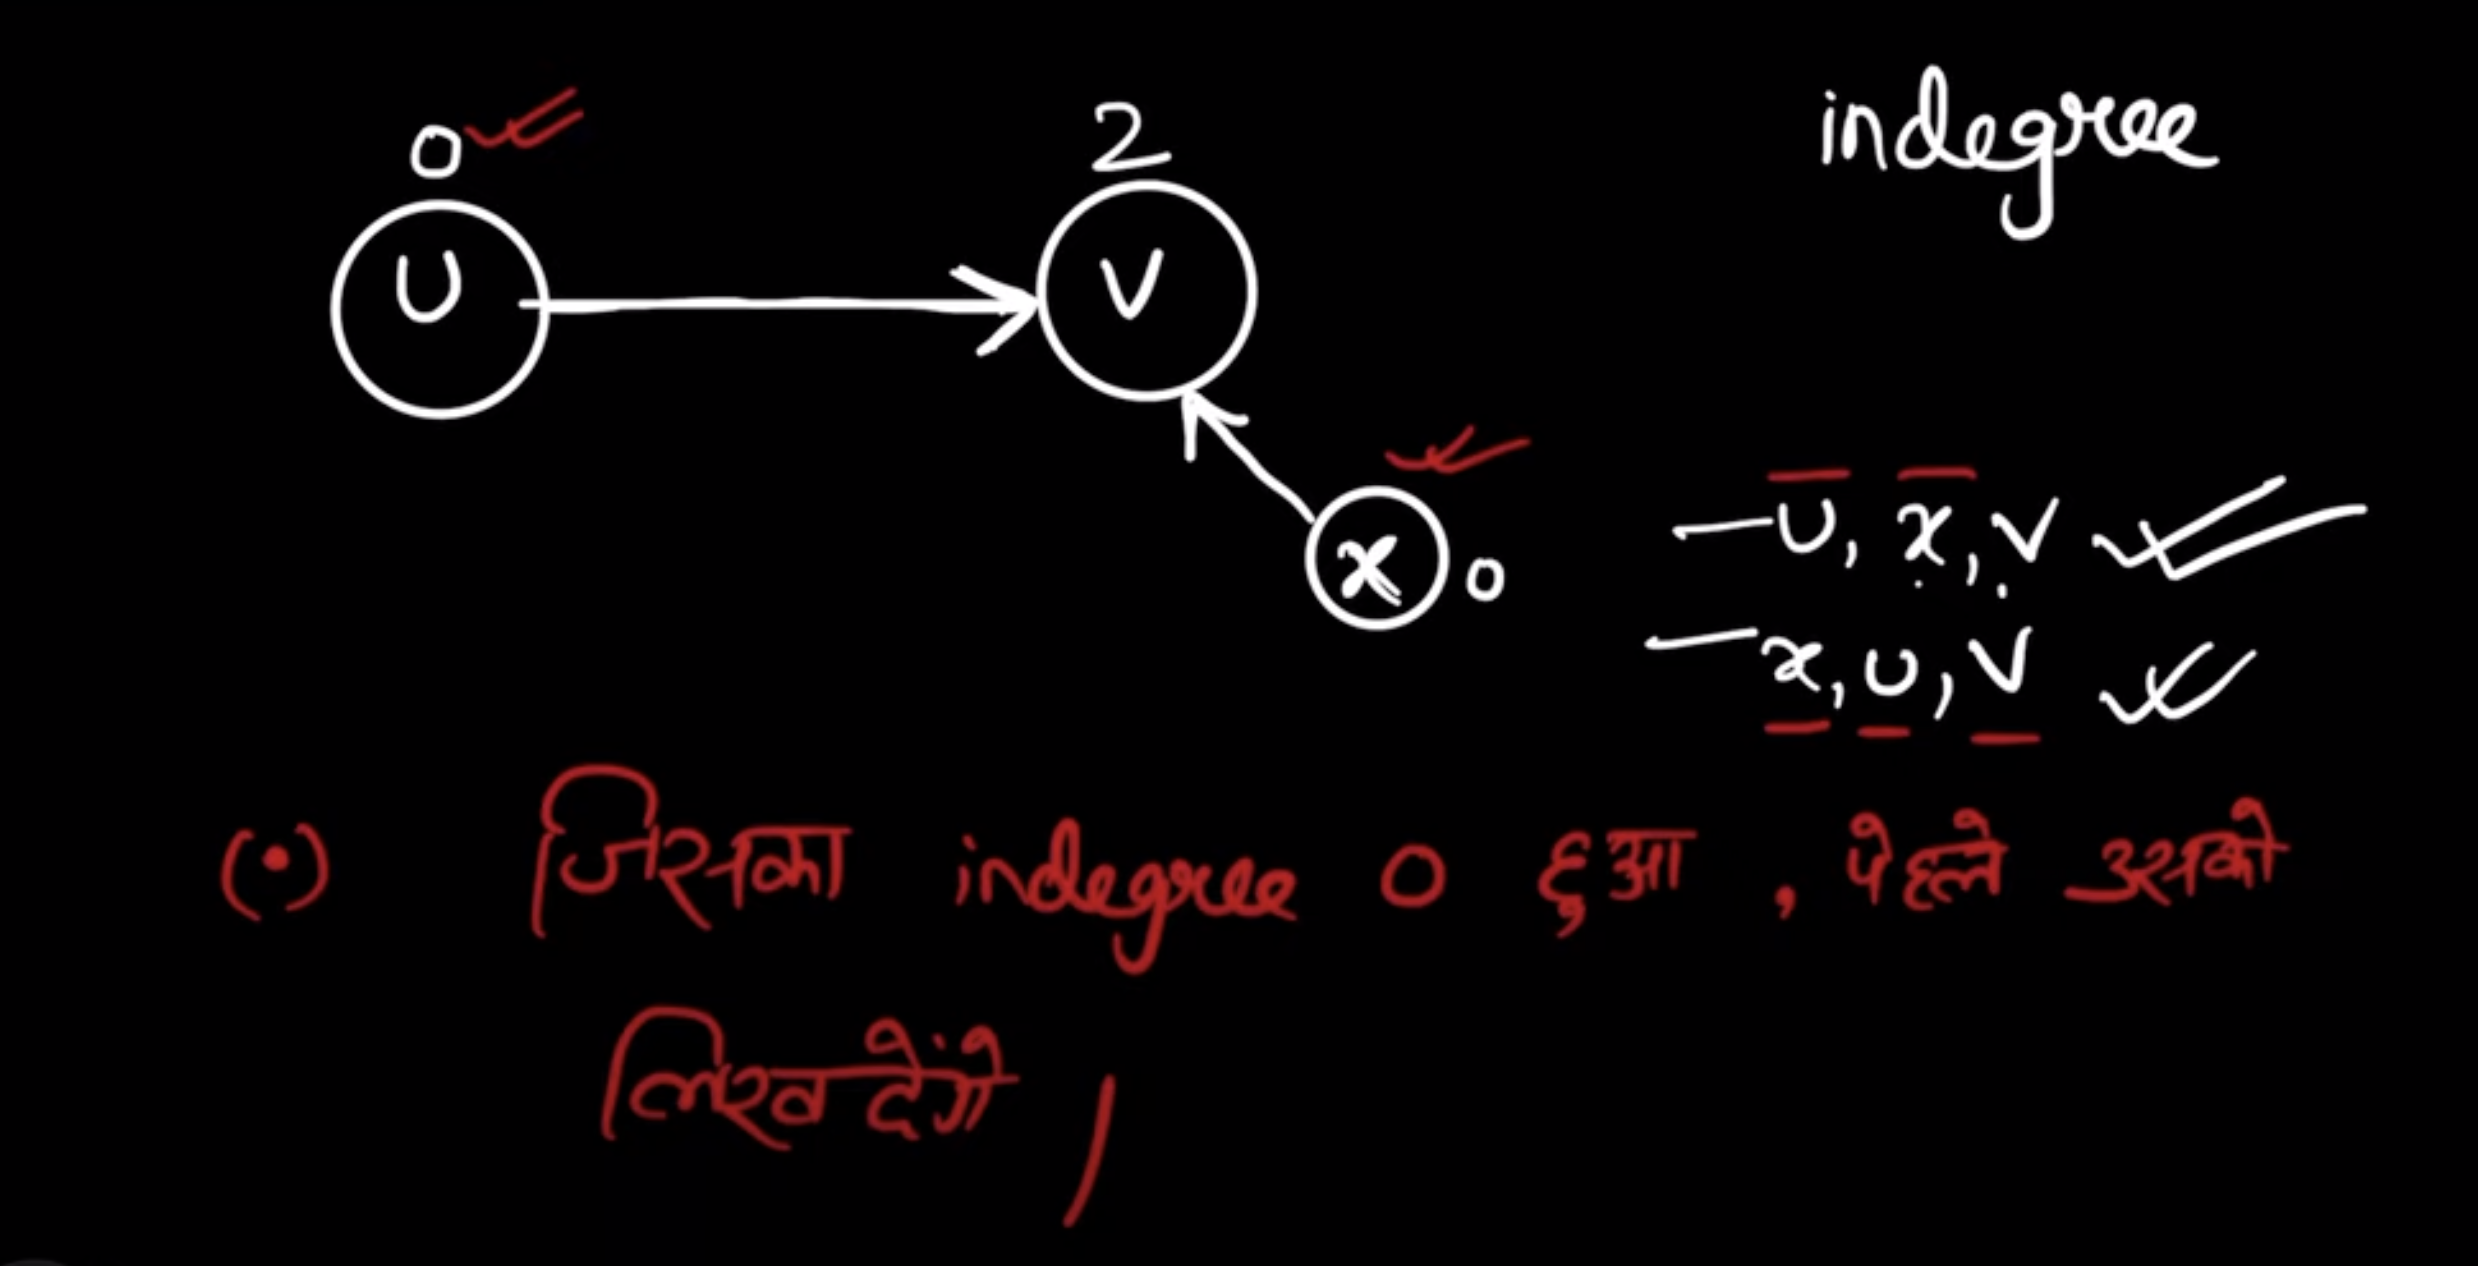 0
2
indegree
U
V
x
0
- U, x, V
- x, U, V
(•) जिसका indegree 0 हुआ , पेहले उसको
लिख देंगे /